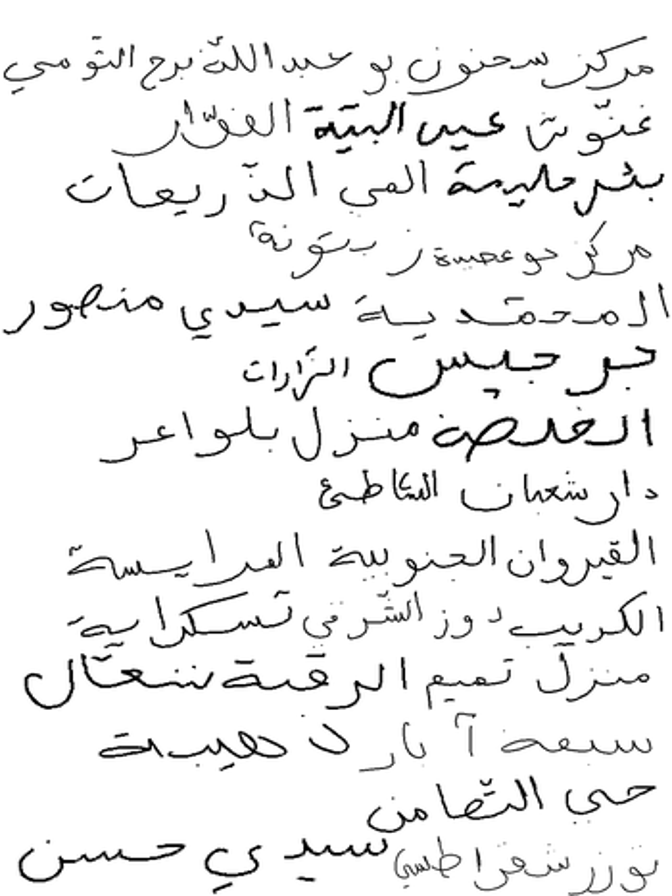 مركز سحنون بو عبد اللّه برج التومي
غنّوش عين البتية الفوّار
بئر حليمة الفي الذّريعات
مركز بو عصيدة زيتونة
المحمّدية سيدي منصور
جرجيس الزّارات
الخلصة منزل بلواعر
دار شعبان الشاطئ
القيروان الجنوبية العرايسة
الكريب دوز الشّرقي تسكراية
منزل تميم الرقبة شعّال
سبعة آبار ذهيبة
حي التّضامن
توزر شقراطسي سيدي حسن